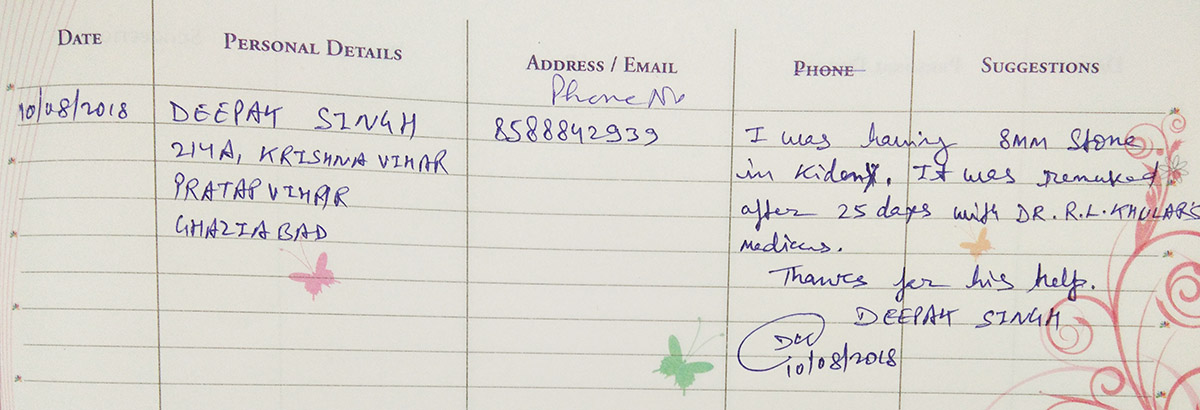 DATE PERSONAL DETAILS ADDRESS / EMAIL PHONE SUGGESTIONS
Phone No
10/08/2018 DEEPAK SINGH 8588842939
214A, KRISHNA VIHAR
PRATAP VIHAR
GHAZIABAD
I was having 8MM Stone
in Kideny. It was remuked
after 25 days with DR. R.L. KHULAR'S
medicens.
Thanks for his help.
DEEPAK SINGH
10/08/2018